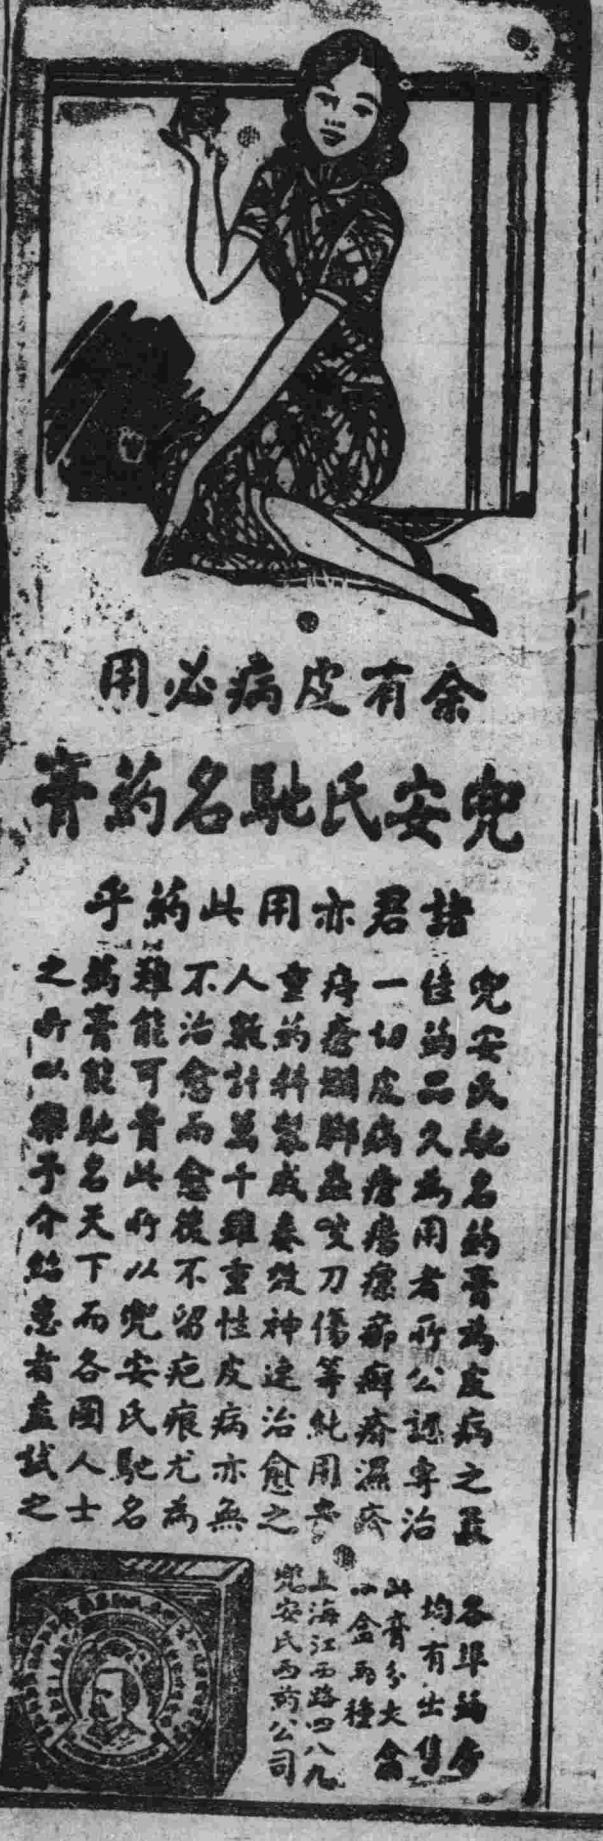 余有皮病必用
兜安氏馳名药膏
諸君亦用此药乎
兜安氏馳名药膏為皮病之最
佳药品久為用者所公認専治
一切皮病瘡瘍癤癬疥濕疹
痔瘡爛脚蟲咬刀傷等純用貴
重药料製成奏效神速治愈之
人數計萬千雖重性皮病亦無
不治愈而愈後不留疤痕尤為
難能可貴此所以兜安氏馳名
药膏能馳名天下而各國人士
之所以樂予介紹患者盍試之
各埠药房
均有出售
此膏分大盒
小盒兩種
上海江西路四八九
兜安氏西药公司